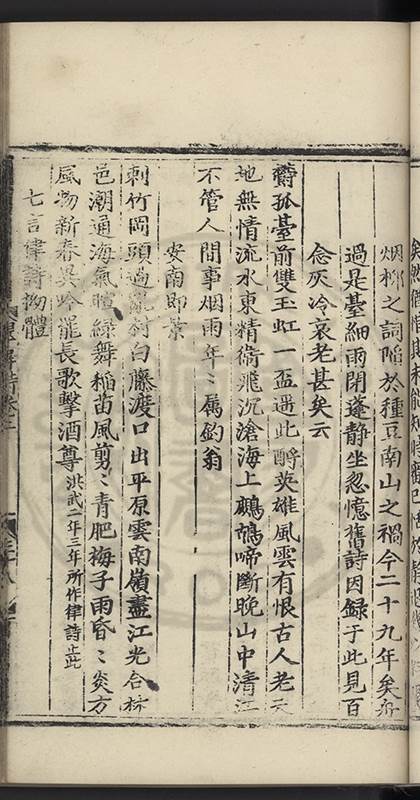 烟柳之詞陷於種豆南山之禍今二十九年矣舟
過是臺細雨閉蓬静坐忽憶舊詩因録于此見百
念灰冷衰老甚矣云
欝孤臺前雙玉虹一盃遇此酹英雄風雲有恨古人老天
地無情流水東精衛飛沉滄海上鷓鴣啼斷晚山中清江
不管人間事烟雨年〻属釣翁
安南即景
刺竹岡頭過亂封白藤渡口出平原雲南嶺盡江光合
邑潮通海氣暄緑舞稲苗風剪〻青肥梅子雨昏〻炎方
風物新春異吟罷長歌擊酒尊洪武二年三年所作律詩止此
七言律詩拗體